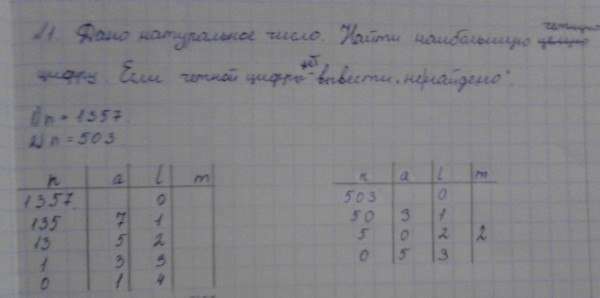 11. Дано натуральное число. Найти наибольшую четную
цифру. Если четной цифры нет вывести "не найдено".
1) n = 1357
2) n = 503
n a l m
1357 0
135 7 1
13 5 2
1 3 3
0 1 4
n a l m
503 0
50 3 1
5 0 2 2
0 5 3